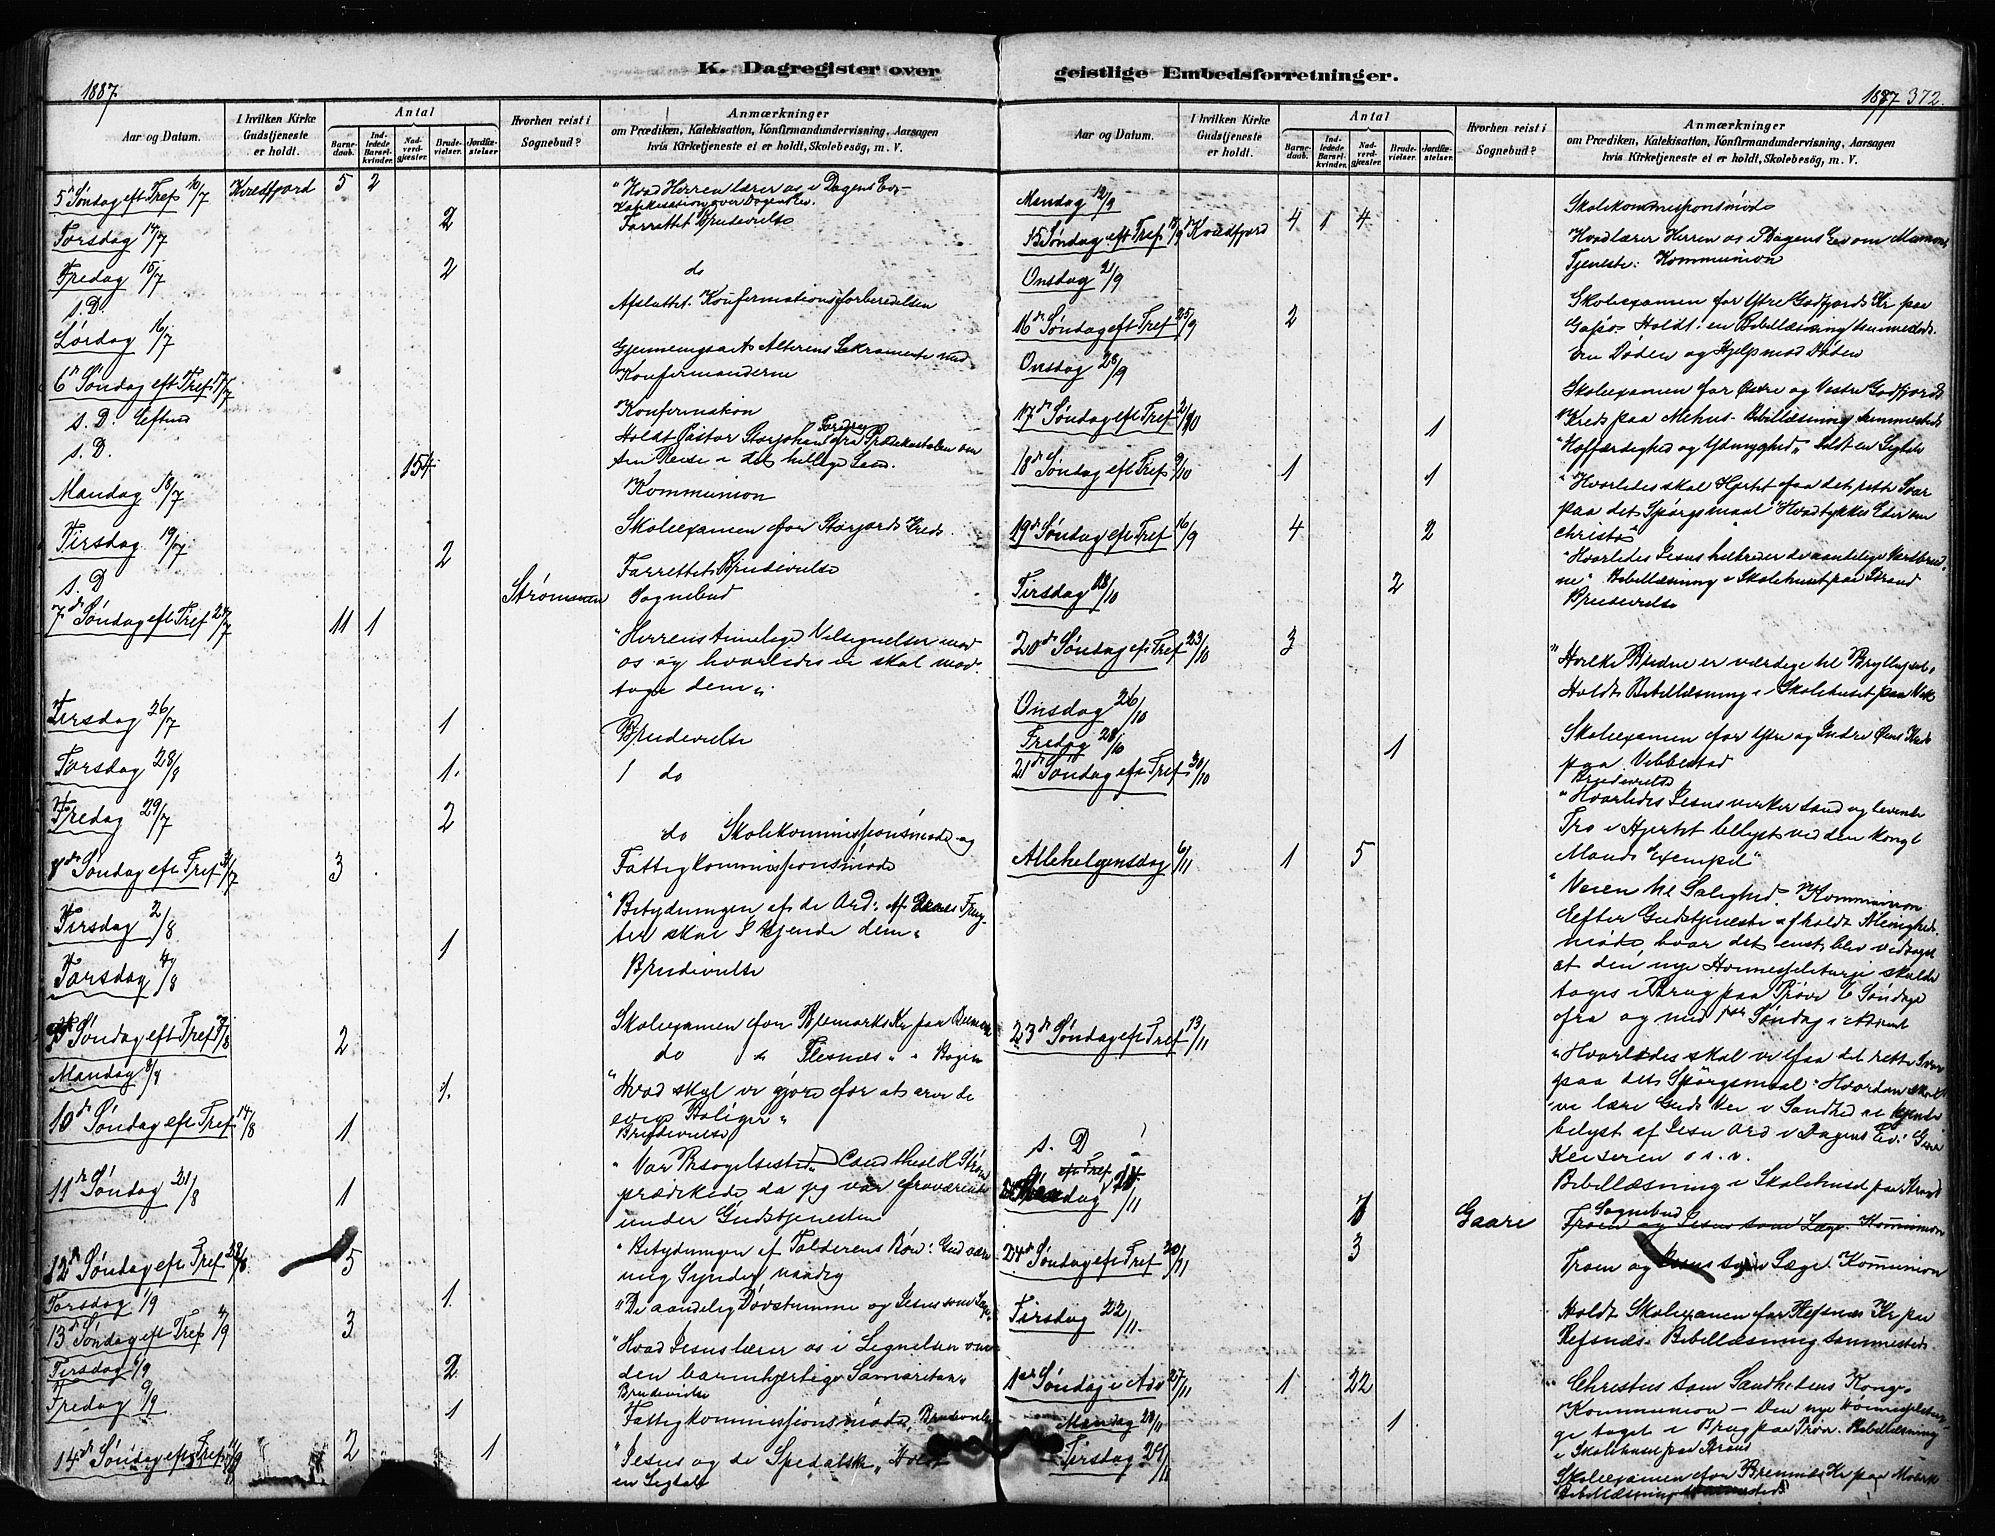 K. Dagregister over geistlige Embedsforretninger.
1887.
1887 372.
Aar og Datum.
I hvilken Kirke Gudstjeneste er holdt.
Antal
Barnedaab.
Indledede Barselkvinder.
Nadverdgjæster.
Brudevielser.
Jordfæstelser
Hvorhen reist i Sognebud?
Anmærkninger
om Prædiken, Katekisation, Konfirmandundervisning, Aarsagen
hvis Kirketjeneste ei er holdt, Skolebesøg, m. V.
5 Søndag eft Tref 10/7 Kvædfjord 5 2 "Hvad Herren lærer os i Dagens Ev-
Katekisation over Dagens Ev.
Torsdag 14/7 2 Forrettet Brudevielse
Fredag 15/7 2 do
s. D. Afsluttet Konfirmationsforberedelsen
Lørdag 16/7 Gjennemgaaet Alterens Sakramente med
Konfirmanderne
6 Søndag eft Tref 17/7 Konfirmation
s. D. Eftmd Holdt Pastor Storjohan Foredrag fra Prædikestolen om
sin Reise i det hellige Land.
s. D. 154 Kommunion
Mandag 18/7 Skoleexamen for Storjords Kreds.
Tirsdag 19/7 2 Forrettet Brudevielse
s. D Strømmen Sognebud
7d Søndag eft Tref 24/7 11 1 "Herrens timelige Velsignelser mod
os og hvorledes vi skal mod-
tage dem"
Tirsdag 26/7 1 Brudevielse
Torsdag 28/8 1. 1 do
Fredag 29/7 2 do Skolekommissionsmøde og
Fattigkommissionsmøde
8d Søndag eft Tref 31/7 3 "Betydningen af de Ord: Af deres Frug-
ter skal I kjende dem"
Tirsdag 2/8 1 Brudevielse
Torsdag 4/8 Skoleexamen for
do Flesnes " Bogen
Søndag eft Tref 7/8 2 "Hvad skal vi gjøre for at arve de
evige Boliger"
Mandag 8/8 1. Brudevielse
10d Søndag eft Tref 14/8 1 "Vor Besøgelsestid"
11 Søndag 21/8 1 prædikede da jeg var fraværende
under Gudstjenesten
12 Søndag eft Tref 28/8 5 "Betydningen af Tolderens Bøn: Gud vær
mig Synder naadig
Torsdag 1/9 1.
13d Søndag eft Tref 4/9 3 "De aandelig Døvstumme og Jesus som Læge
Tirsdag 6/9 2 "Hvad Jesus lærer os i Lignelsen om
den barmhjertige Samaritan"
Brudevielse
Fredag 9/9 1 Fattigkommissionsmøde, Brudevielse
14d Søndag eft Tref 11/9 2 1 "Jesus og de Spedalske" Holdt
en Ligtale
Aar og Datum.
I hvilken Kirke Gudstjeneste er holdt.
Antal
Barnedaab.
Indledede Barselkvinder.
Nadverdgjæster.
Brudevielser.
Jordfæstelser.
Hvorhen reist i Sognebud?
Anmærkninger
om Prædiken, Katekisation, Konfirmandundervisning, Aarsagen
hvis Kirketjeneste ei er holdt, Skolebesøg, m. V.
Mandag 12/9 Skolekommissionsmøde
15 Søndag eft Tref 18/9 Kvædfjord 4 1 4 Hvad lærer Herren os i Dagens Ev om Mamons
Tjeneste. Kommunion
Onsdag 21/9 Skoleexamen for Ytre Godfjords Kr paa
Holdt en Bibellæsning sammesteds.
16d Søndag eft Tref 25/9 2 Om Døden og Hjelp mod Døden
Onsdag 28/9 Skoleexamen for Øvre og Vestre Godfjords
Kreds paa Melhus. Bibellæsning sammesteds
17d Søndag eft Tref 2/10 1 "Hoffærdighed og Ydmyghed" Holdt en Ligtale
18d Søndag eft Tref 9/10 1 1 "Hvorledes skal Hjertet faa det rette Svar
paa det Spørgsmaal Hvad tykkes Eder om
Christo"
19d Søndag eft Tref 16/9 4 2 "Hvorledes Jesus helbreder de aandelige Værkbrud-
ne" Bibellæsning i Skolehuset paa Strand
Tirsdag 18/10 2 Brudevielse
20d Søndag eft Tref 23/10 3 "Hvilke Bedne er værdige til Bryllupet"
Holdt Bibellæsning i Skolehuset paa Vik
Onsdag 26/10 Skoleexamen for Ytre og Indre Øens Kreds
paa Vebbestad
Fredag 28/10 1 Brudevielse
21d Søndag eft Tref 30/10 "Hvorledes Jesus virker sand og levende
Tro i Hjertet belyst ved den kongl
Mands Exempel"
Allehelgensdag 6/11 1 5 "Veien til Salighed. Kommunion
Eefter Gudstjeneste afholdt Menigheds-
møde, hvor det enst. blev vedtaget
at den nye Høimesseliturgi skulde
tages i Brug paa Prøve 6 Søndage
fra og med 1ste Søndag i Advent
23d Søndag eft Tref 13/11 "Hvorledes skal vi faa det rette Svar
paa det Spørgsmaal "Hvordan skal
vi lære Guds Vei i Sandhed at kjende
belyst af Jesu Ord i Dagens Ev: Giver
Keiseren o s. v.
s. D Bibellæsning i Skolehuset paa Strand
1 Gaare Sognebud
Troen og Jesus som Læge. Kommunion
24d Søndag eft Tref 20/11 3 Troen og Jesus som Læge. Kommunion
Tirsdag 22/11. Holdt Skoleexamen for Refsnæs Kr paa
Refsnæs. Bibellæsning sammesteds
1ste Søndag i Adv 27/11 1 22 "Christus som Sandhedens Konge"
Kommunion - Den nye Høimesselitur-
gi taget i Brug paa Prøve. Bibellæsning
i Skolehuset paa Strand
Mandag 28/11 1
Tirsdag 29/11 Skoleexamen for Kr paa
Bibellæsning sammesteds